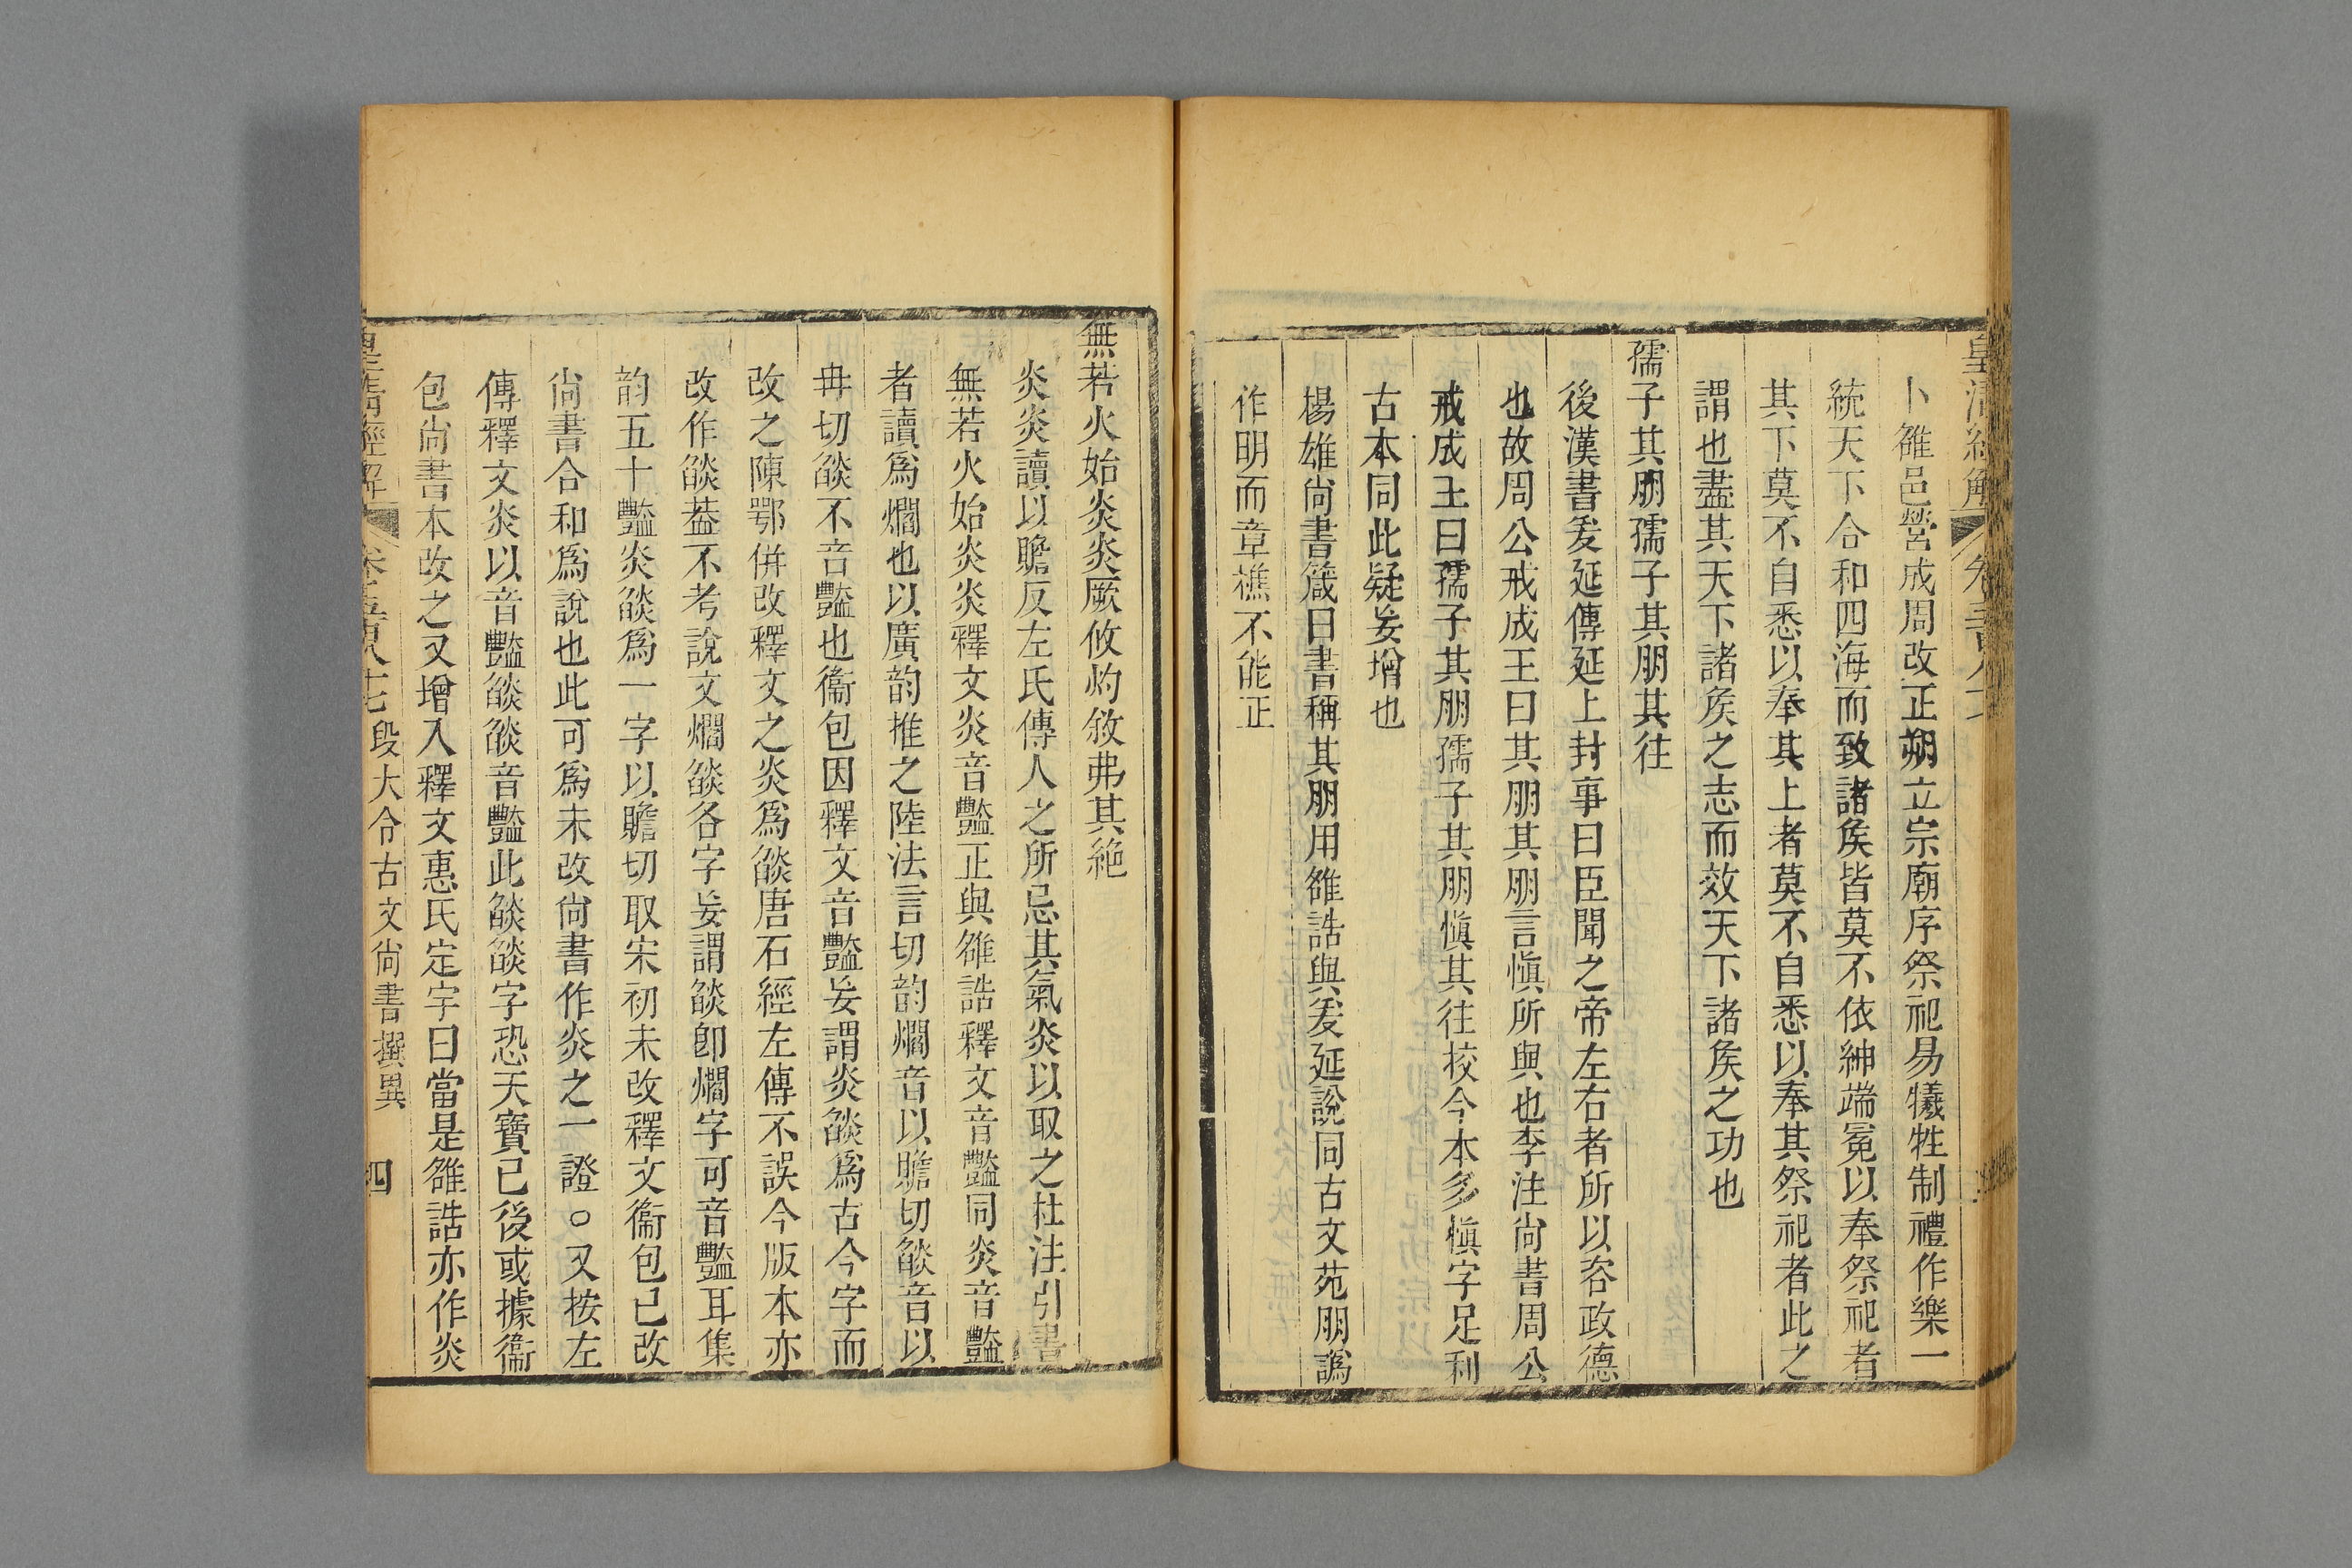 皇清經解
卜雒邑營成周改正朔立宗廟序祭祀易犧牲制禮作樂一
統天下合和四海而致諸矦皆莫不依紳端冕以奉祭祀者
其下莫不自悉以奉其上者莫不自悉以奉其祭祀者此之
謂也盡其天下諸矦之志而效天下諸矦之功也
孺子其朋孺子其朋其往
後漢書爰延傳延上封事曰臣聞之帝左右者所以咨政德
也故周公戒成王曰其朋其朋言愼所與也李注尙書周公
戒成王曰孺子其朋孺子其朋愼其往挍今本多愼字足利
古本同此疑妄增也
楊雄尙書箴曰書稱其朋用雒誥與爰延說同古文苑朋譌
作明而章樵不能正
無若火始炎炎厥攸灼敘弗其絶
炎炎讀以贍反左氏傳人之所忌其氣炎以取之杜注引書
無若火始炎炎釋文炎音豔正與雒誥釋文音豔同炎音豔
者讀爲爓也以廣韵推之陸法言切韵爓音以贍切燄音以
冉切燄不音豔也衞包因釋文音豔妄謂炎燄爲古今字而
改之陳鄂併改釋文之炎爲燄唐石經左傳不誤今版本亦
改作燄葢不考說文爓燄各字妄謂燄卽爓字可音豔耳集
韵五十豔炎燄爲一字以贍切取宋初未改釋文衞包已改
尙書合和爲說也此可爲未改尙書作炎之一證○又按左
傳釋文炎以音豔燄燄音豔此燄燄字恐天寶已後或據衞
包尙書本改之又增入釋文惠氏定宇曰當是雒誥亦作炎
皇清經解 卷五百八十七 段大令古文尙書撰異 四